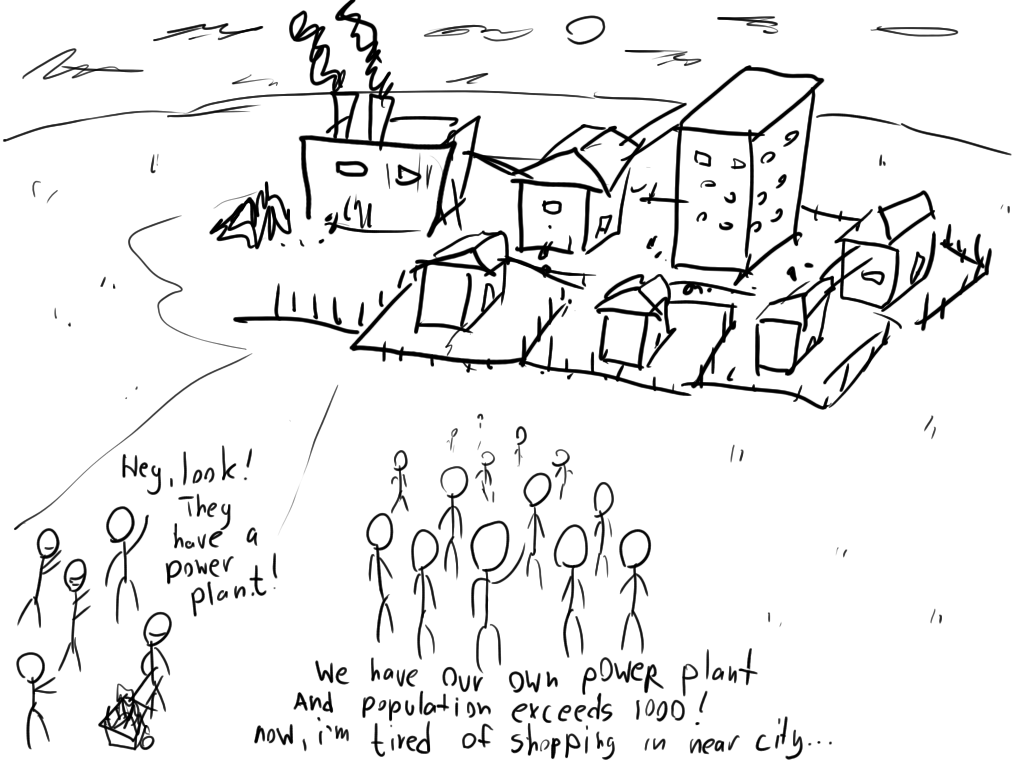 Hey, look!
They
have a
power
plant!
We have our own power plant
And population exceeds 1000!
now, i'm tired of shopping in near city...